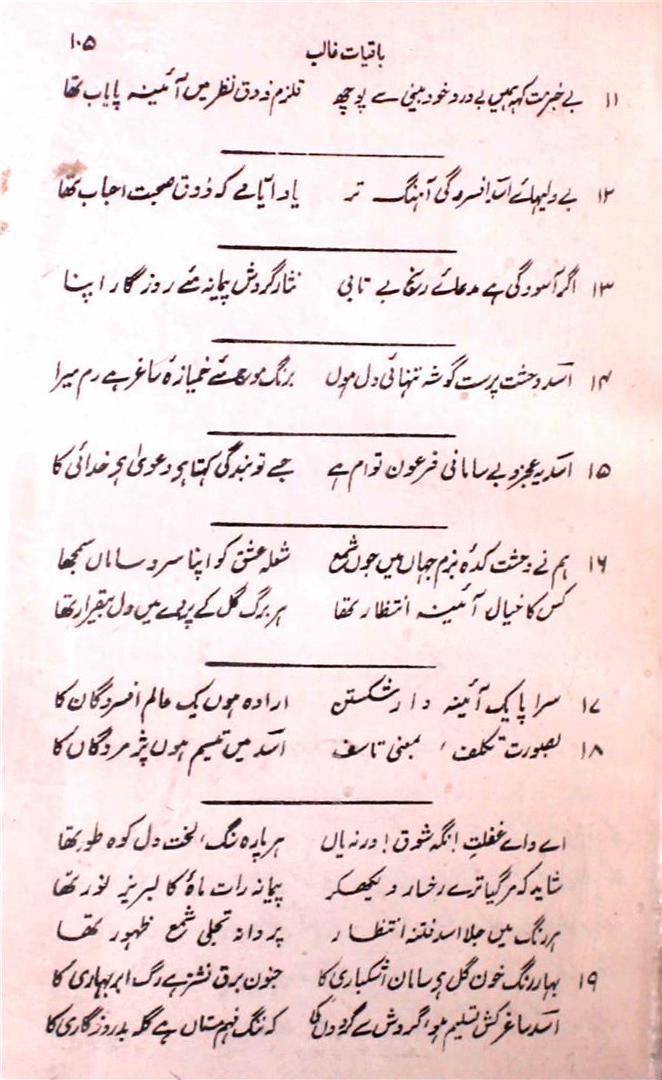 باقیات غالب ۱۰۵
۱۱ بے خبر مت کہہ ہمیں بے درد خود بینی سے پوچھ قلزم ذوق نظر میں آئینہ پایاب تھا
۱۲ بے دلیہائے اسد افسردگی آہنگ تر یاد ایامے کہ ذوق صحبت احباب تھا
۱۳ اگر آسودگی ہے مدعائے رنج بے تابی نثار گردش پیمانہ مئے روزگار اپنا
۱۴ اسد وحشت پرست گوشہ تنہائی دل ہوں برنگ موج مئے خمیازۂ ساغر ہے رم میرا
۱۵ اسد یہ عجز و بے سامانی فرعون توام ہے جسے تو بندگی کہتا ہو دعویٰ ہو خدائی کا
۱۶ ہم نے وحشت کدۂ بزم جہاں میں جوں شمع شعلہ عشق کو اپنا سر و ساماں سمجھا
کس کا خیال آئینہ انتظار تھا ہر برگ گل کے پردے میں دل بیقرار تھا
۱۷ سراپا یک آئینہ دار شکستن ارادہ ہوں یک عالم افسردگان کا
۱۸ بصورت تکلف ، بمعنی تاسف اسد میں تبسم ہوں پژمردگاں کا
اے وائے غفلتِ ! نگہ شوق ! ورنہ یاں ہر پارہ سنگ ، لخت دل کوہ طور تھا
شاید کہ مر گیا ترے رخسار دیکھکر پیمانہ رات ماہ کا لبریز نور تھا
ہر رنگ میں جلا اسد فتنہ انتظار پردانۂ تجلی شمع ظہور تھا
۱۹ بہار رنگ خون گل ہو سامان اشکباری کا جنون برق نشتر ہے رگ ابر بہاری کا
اسد ساغر کش تسلیم ہو ، گردش سے گردوں کی کہ ننگ فہم مستاں ہے گلہ بد روزگاری کا